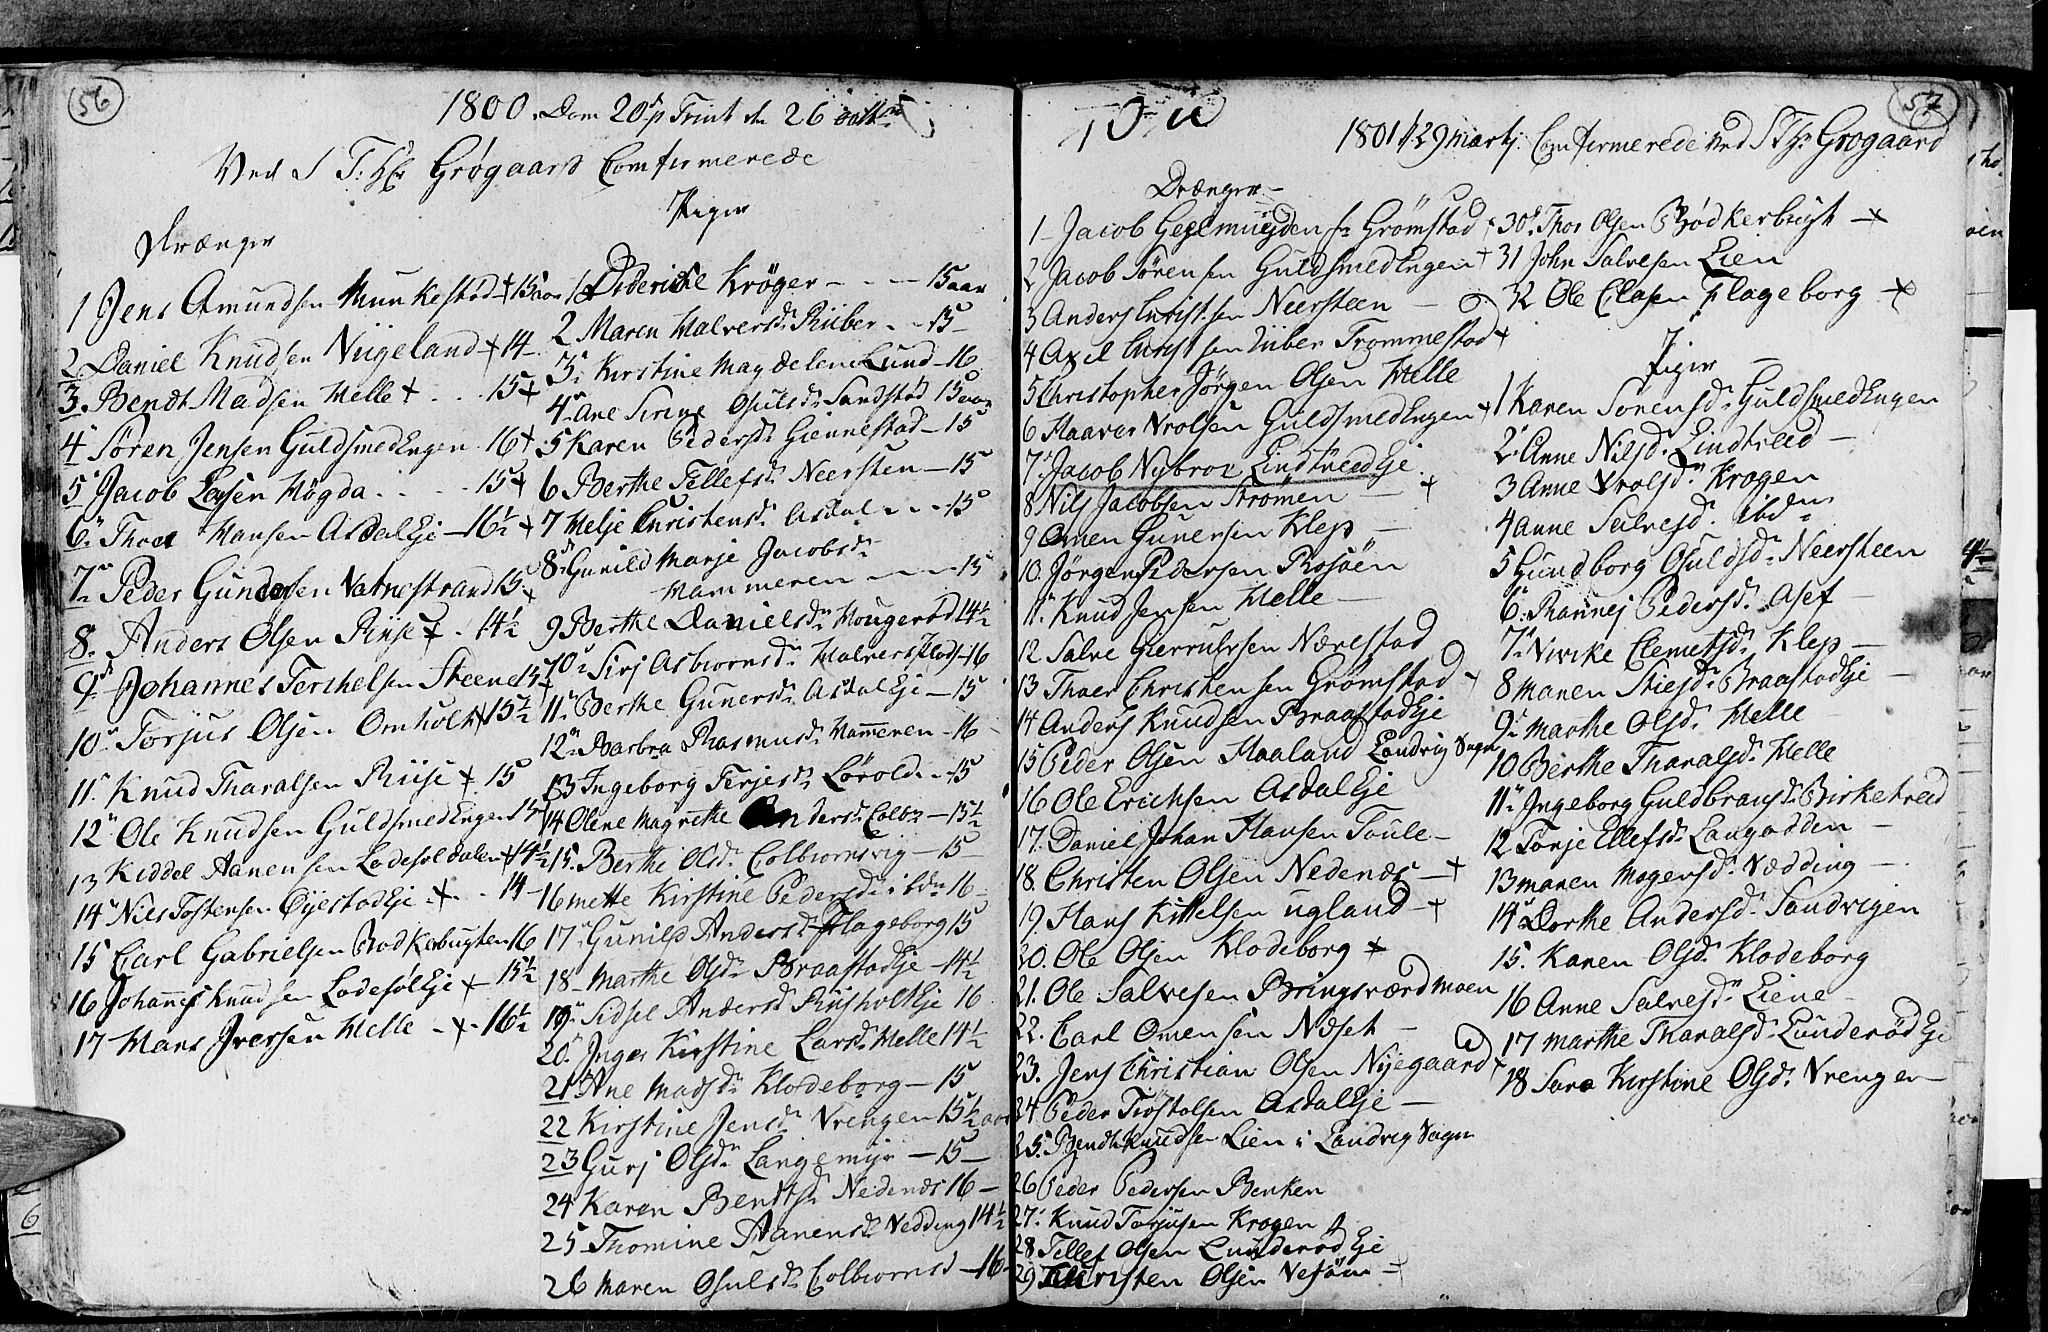 56
1800. Dom 20 p Trint d 26 octbr
Ved S T: Hr Grøgaard Comfirmerede
Drænger
1 Jens Amundsen Munkestød + 15 aar
2 Daniel Knudsen Nügeland + 14
3. Bendt Madsen Helle + . . . 15 +
4 Søren Jensen GuldsmedEngen . 16 +
5 Jacob Leysen Høgda . . . . 15 +
6 Thoer Hansen AsdalEje - 16½ +
7 Peder Gundersen Vatnestrand 15 +
8. Anders Olsen Riise + . 14½
9 Johannes Terchelsen Steene 15
10 Torjus Olsen Omholt + 15½
11 Knud Tharalsen Riise + 15
12 Ole Knudsen GuldsmedEngen 15
13 Kiddel Aanensen Ladesøldalen + 14½
14 Niels Tostensen ØyestadEje + . . 14 -
15 Carl Gabrielsen Bødkerbugten 16
16 Johannes Knudsen LadesølEje + - 15½
17 Hans Iversen Helle - + - 16½
Piger
1 Dideriche Krøger - - - 15 aar
2 Maren Halversdr Rüber - - 15 -
3 Kirstine Magdelene Lund - 16
4 Ane Sirene Osulsdr Sandstød 15 aar
5 Karen Pedersdr Giennestad - 15
6 Berthe Tellefsdr Neersten - 15
7 Helje Christensdr Asdal - - - 15
8 Gunild Marje Jacobsdr
Hammeren - - - 15
9 Berthe Danielsdr Hougerød 14½
10 Sirj Asbiornsdr Halversplads - 16
11 Berthe Gunersdr AsdalEje - 15
12 Barbra Rasmusdr Hammeren - 16
13 Ingeborg Terjesdr Lørold - - 15
14 Oline Magrethe Andersdr Colbr - 15½
15. Berthe Olsdr Colbiornsvig - 15
16 Mette Kirstine Pedersdr ibdn 16 -
17 Gunild Andersdr Flageborg 15
18 - Marthe Olsdr BraastadEje - 14½
19 Sidsel Andersdr RiisholtEje 16
20 Inger Kirstine Larsdr Helle 14½
21 Ane Madsdr Klodeborg - 15
22 Kirstine Jensdr Vrengen 15½ aar
23 Gurj Olsdr Langemyr - 15 -
24 Karen Bentsdr Nedenæs 16 -
25 Thomine Aanensdr Vedding 14½
26 Maren Osulsdr Colbiornsd - 16 -
57
1801 d 29 Martj. Comfirmerede ved S T Hr Grøgaard
Drænger -
1 - Jacob Gegelmuyden fr Grømstad +
2 Jacob Sørensen GuldsmedEngen +
3 Anders Christsen Neersteen -
4 Axel Christsen Trommestad +
5 Christopher Jørgen Olsen Helle
6 Haaver Wrolsen GuldsmedEngen +
7 Jacob Nybroe LindtveedEje.
8 Nils Jacobsen Strømen - +
9 Omen Gunersen Klep -
10. Jørgen Pedersen Rosøen
11. Knud Jensen Helle -
12 Salve Gierrulvsen Nærestad
13 Thoer Christensen Grømstad +
14 Anders Knudsen BraastadEje
15 Peder Olsen Haaland Landvig Sogn
16 Ole Erichsen AsdalEje
17. Daniel Johan Hansen Soule -
18. Christen Olsen Nedenæs - +
19. Hans Kittelsen Ugland - +
20. Ole Olsen Klodeborg +
21. Ole Salvesen Bringsværdmoen
22. Carl Omensen Næset -
23. Jens Christian Olsen Nyegaard +
24 Peder Tiostolsen AsdalEje -
25. Bendt Knudsen Lien i Landvig Sogn
26 Peder Pedersen Benken
27. Knud Torjusen Krogen
28 Tellef Olsen Lunderød Eje
29 Christen Olsen Vesøen -
30. Thor Olsen Bødkerbugt - +
31 John Salvesen Lien
32 Ole Olasen Flageborg - +
Piger -
1 Karen Sørensdr GuldsmedEngen
2 Anne Nilsdr Lindtveed -
3 Anne Wrolsdr Krogen
4 Anne Salvesdr ibdn
5 Gundborg Osuldsdr Neersteen
6. Rannej Pedersdr Asef -
7 Vivike Clemetsdr Klep -
8 Maren Stiesdr BraastadEje -
9 Marthe Olsdr Helle -
10 Berthe Tharalsdr Helle
11 Ingeborg Guldbransdr Birketveed
12 Tonje Ellefsdr Langodden -
13 Maren Mogensdr Vædding -
14 Dorthe Andersdr Sandvigen
15. Karen Olsdr Klodeborg
16 Anne Salvesdr Liene -
17 Marthe Tharalsdr Lunderød Eje
18 Sara Kirstine Olsdr Vrengen -